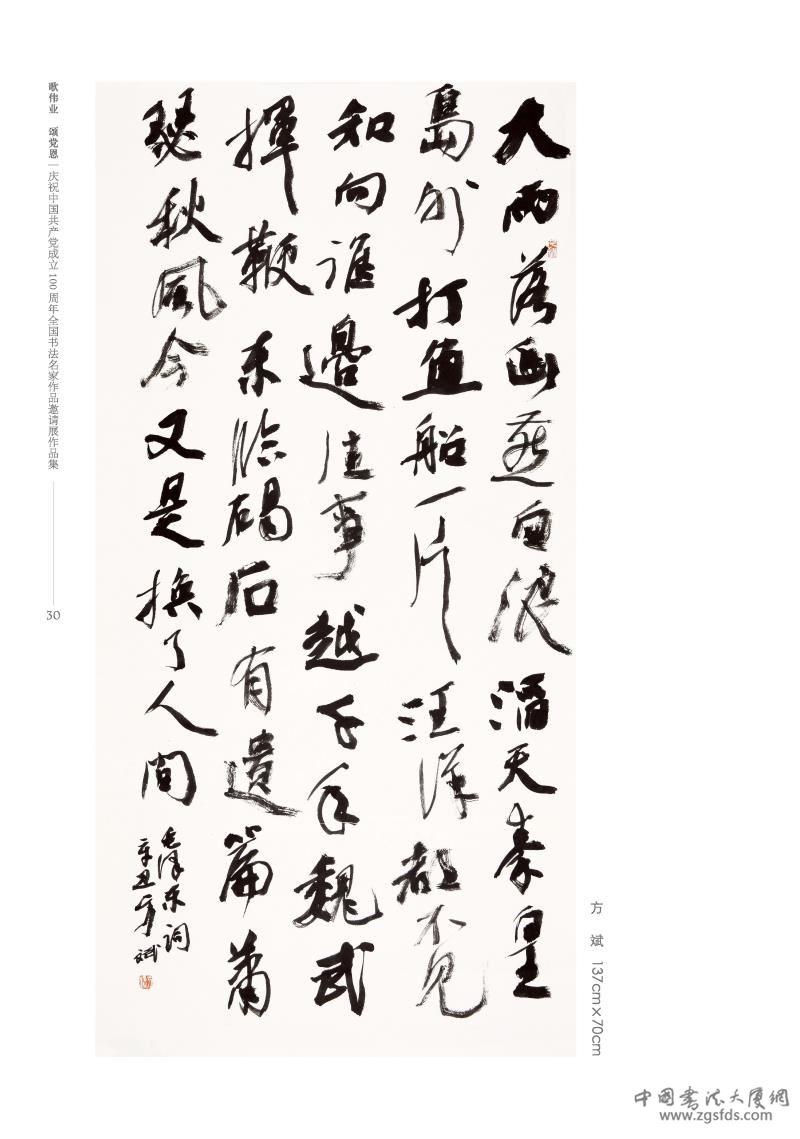 大雨落幽燕白浪滔天秦皇
島外打魚船一片汪洋都不見
知向誰邊往事越千年魏武
揮鞭東臨碣石有遺篇蕭
瑟秋風今又是換了人間
毛澤東詞
辛丑方斌
方 斌 137cm×70cm
歌伟业 颂党恩 | 庆祝中国共产党成立100周年全国书法名家作品邀请展作品集
30
中国書法大厦網
www.zgsfds.com